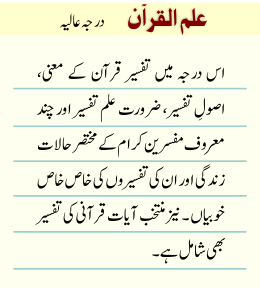 علم القرآن درجہ عالیہ
اس درجہ میں تفسیر قرآن کے معنی،
اصولِ تفسیر، ضرورت علم تفسیر اور چند
معروف مفسرین کرام کے مختصر حالات
زندگی اور ان کی تفسیروں کی خاص خاص
خوبیاں۔ نیز منتخب آیات قرآنی کی تفسیر
بھی شامل ہے۔